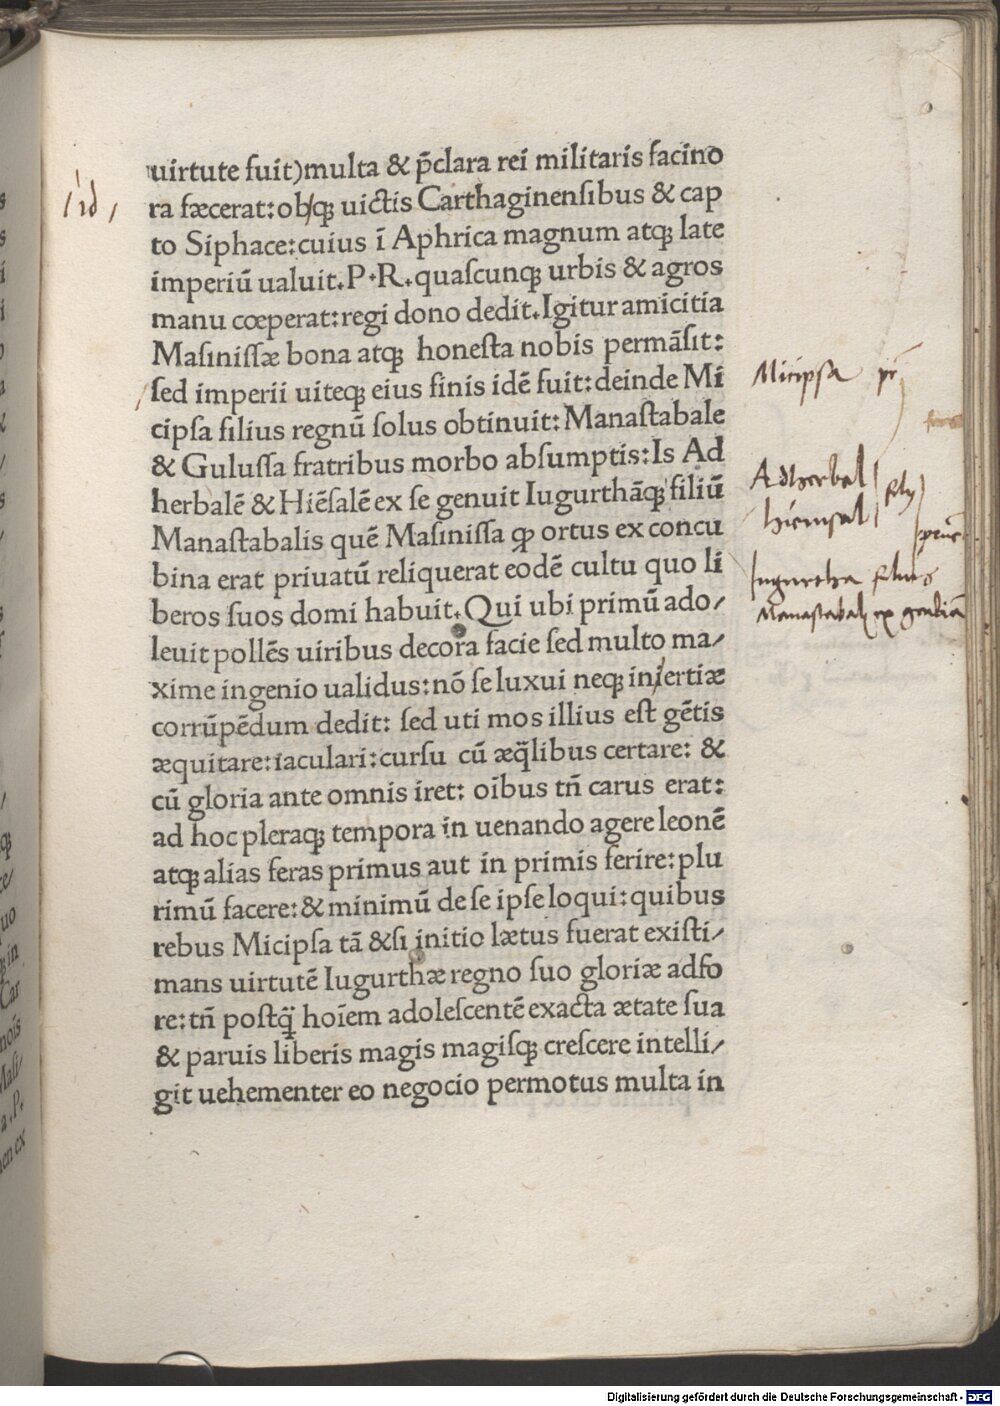 uirtute fuit)multa & p̃clara rei militaris facino
/ id /
ra fæcerat:ob/qꝫ uictis Carthaginenſibus & cap
to Siphace:cuius ī Aphrica magnum atqꝫ late
imperiū ualuit.P.R.quaſcunqꝫ urbis & agros
manu cœperat:regi dono dedit.Igitur amicitia
Maſiniſſæ bona atqꝫ honeſta nobis permāſit:
ſed imperii uiteqꝫ eius finis idē fuit:deinde Mi
Micipsa
cipſa filius regnū ſolus obtinuit:Manaſtabale
& Guluſſa fratribus morbo abſumptis:Is Ad
Adherbal
herbalē & Hiēſalē ex ſe genuit Iugurthāqꝫ filiū
hiempsal
filij
Manaſtabalis quē Maſiniſſa ꝙ ortus ex concu
bina erat priuatū reliquerat eodē cultu quo li
Iugurtha filius
beros ſuos domi habuit.Qui ubi primū ado/
Manastabal ex
leuit pollēs uiribus decora facie ſed multo ma/
xime ingenio ualidus:nō ſe luxui neqꝫ in/ertiæ
corrūpēdum dedit: ſed uti mos illius eſt gētis
æquitare:iaculari:curſu cū æq̃libus certare: &
cū gloria ante omnis iret: oībus tñ carus erat:
ad hoc pleraqꝫ tempora in uenando agere leonē
atqꝫ alias feras primus aut in primis ferire:plu
rimū facere:& minimū de ſe ipſe loqui:quibus
rebus Micipſa tā &ſi initio lætus fuerat exiſti/
mans uirtutē Iugurthæ regno ſuo gloriæ adfo
re:tñ poſtq̃ hoīem adoleſcentē exacta ætate ſua
& paruis liberis magis magiſqꝫ creſcere intelli/
git uehementer eo negocio permotus multa in
Digitalisierung gefördert durch die Deutsche Forschungsgemeinschaft - DFG